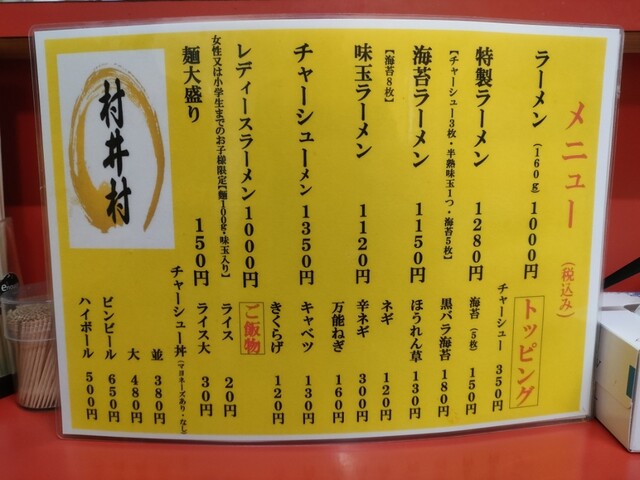 メニュー（税込み）
ラーメン（160g）1000円
特製ラーメン 1280円
【チャーシュー3枚・半熟味玉1つ・海苔5枚】
海苔ラーメン 1150円
【海苔8枚】
味玉ラーメン 1120円
チャーシューメン 1350円
レディースラーメン 1000円
女性又は小学生までのお子様限定【麺100g・味玉入り】
麺大盛り 150円
トッピング
チャーシュー 350円
海苔（5枚）150円
黒バラ海苔 180円
ほうれん草 130円
ネギ 120円
辛ネギ 300円
万能ねぎ 160円
キャベツ 130円
きくらげ 120円
ご飯物
ライス 20円
ライス大 30円
チャーシュー丼（マヨネーズあり・なし）
並 380円
大 480円
ビンビール 650円
ハイボール 500円
村井村